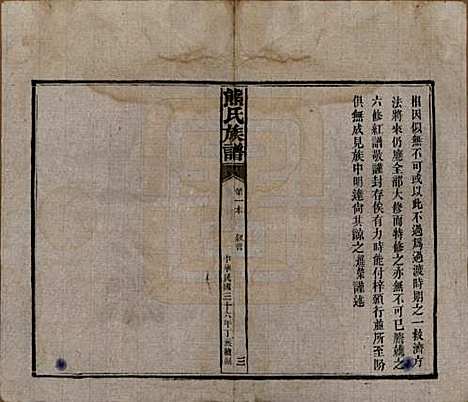 相因似無不可或以此不過爲過渡時期之一救濟方
法將來仍應全部大修而特修之亦無不可已謄藏之
六修紅譜敬謹封存俟有力時能付梓頒行並所至盼
俱無成見族中明達尚其諒之 謹述
熊氏族譜
第一本
叙言
中華民國三十六年丁亥續編
三